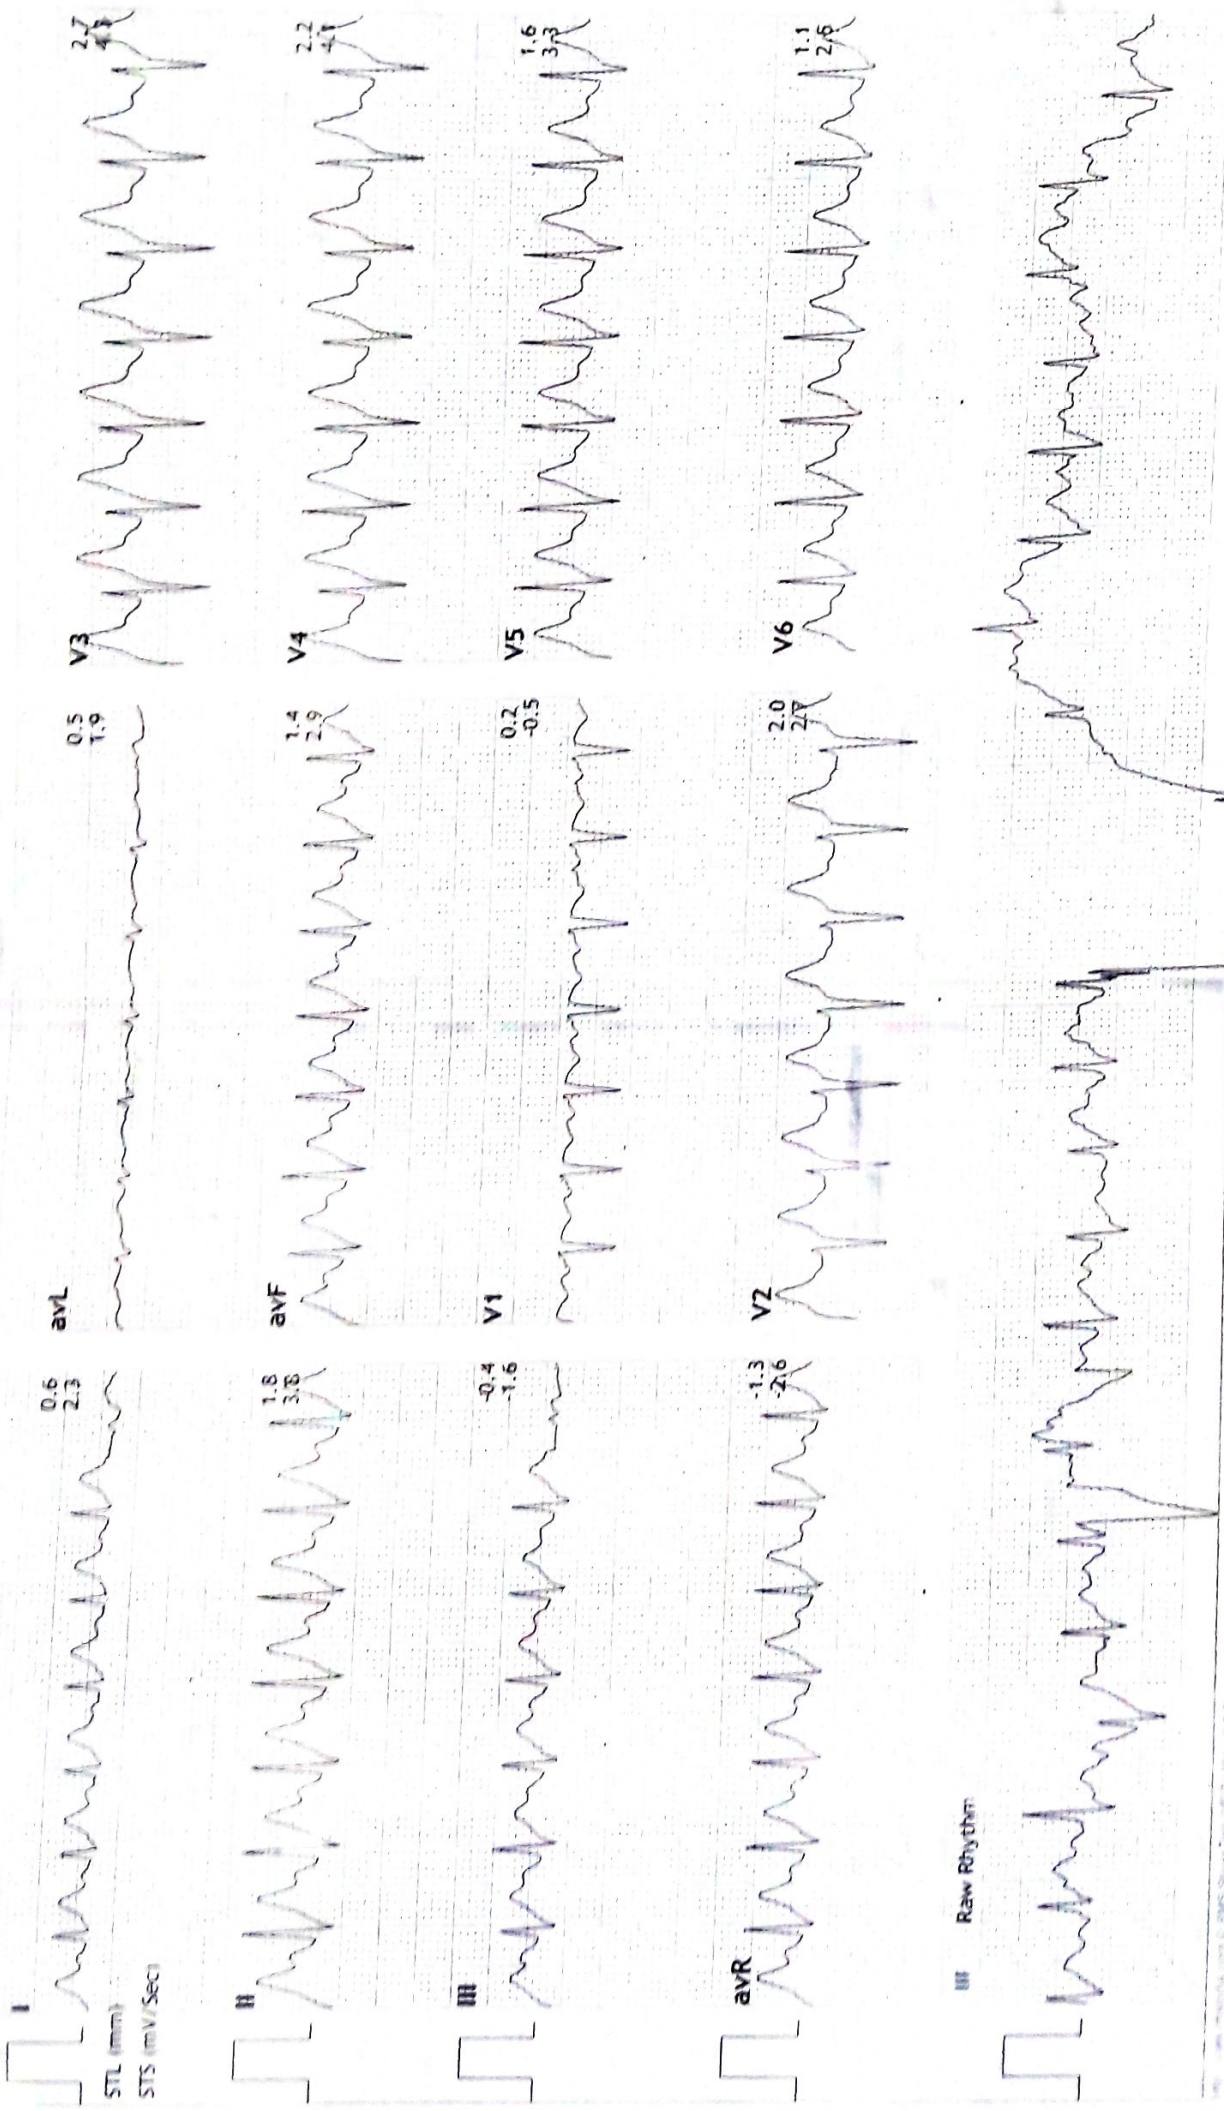 I
STL (mm)
STS (mV/Sec)
0.6
2.3
avL
0.5
1.9
V3
2.7
II
1.8
3.8
avF
1.4
2.9
V4
2.2
III
-0.4
-1.6
V1
0.2
-0.5
V5
1.6
3.3
avR
-1.3
-2.6
V2
2.0
V6
1.1
2.6
III Raw Rhythm